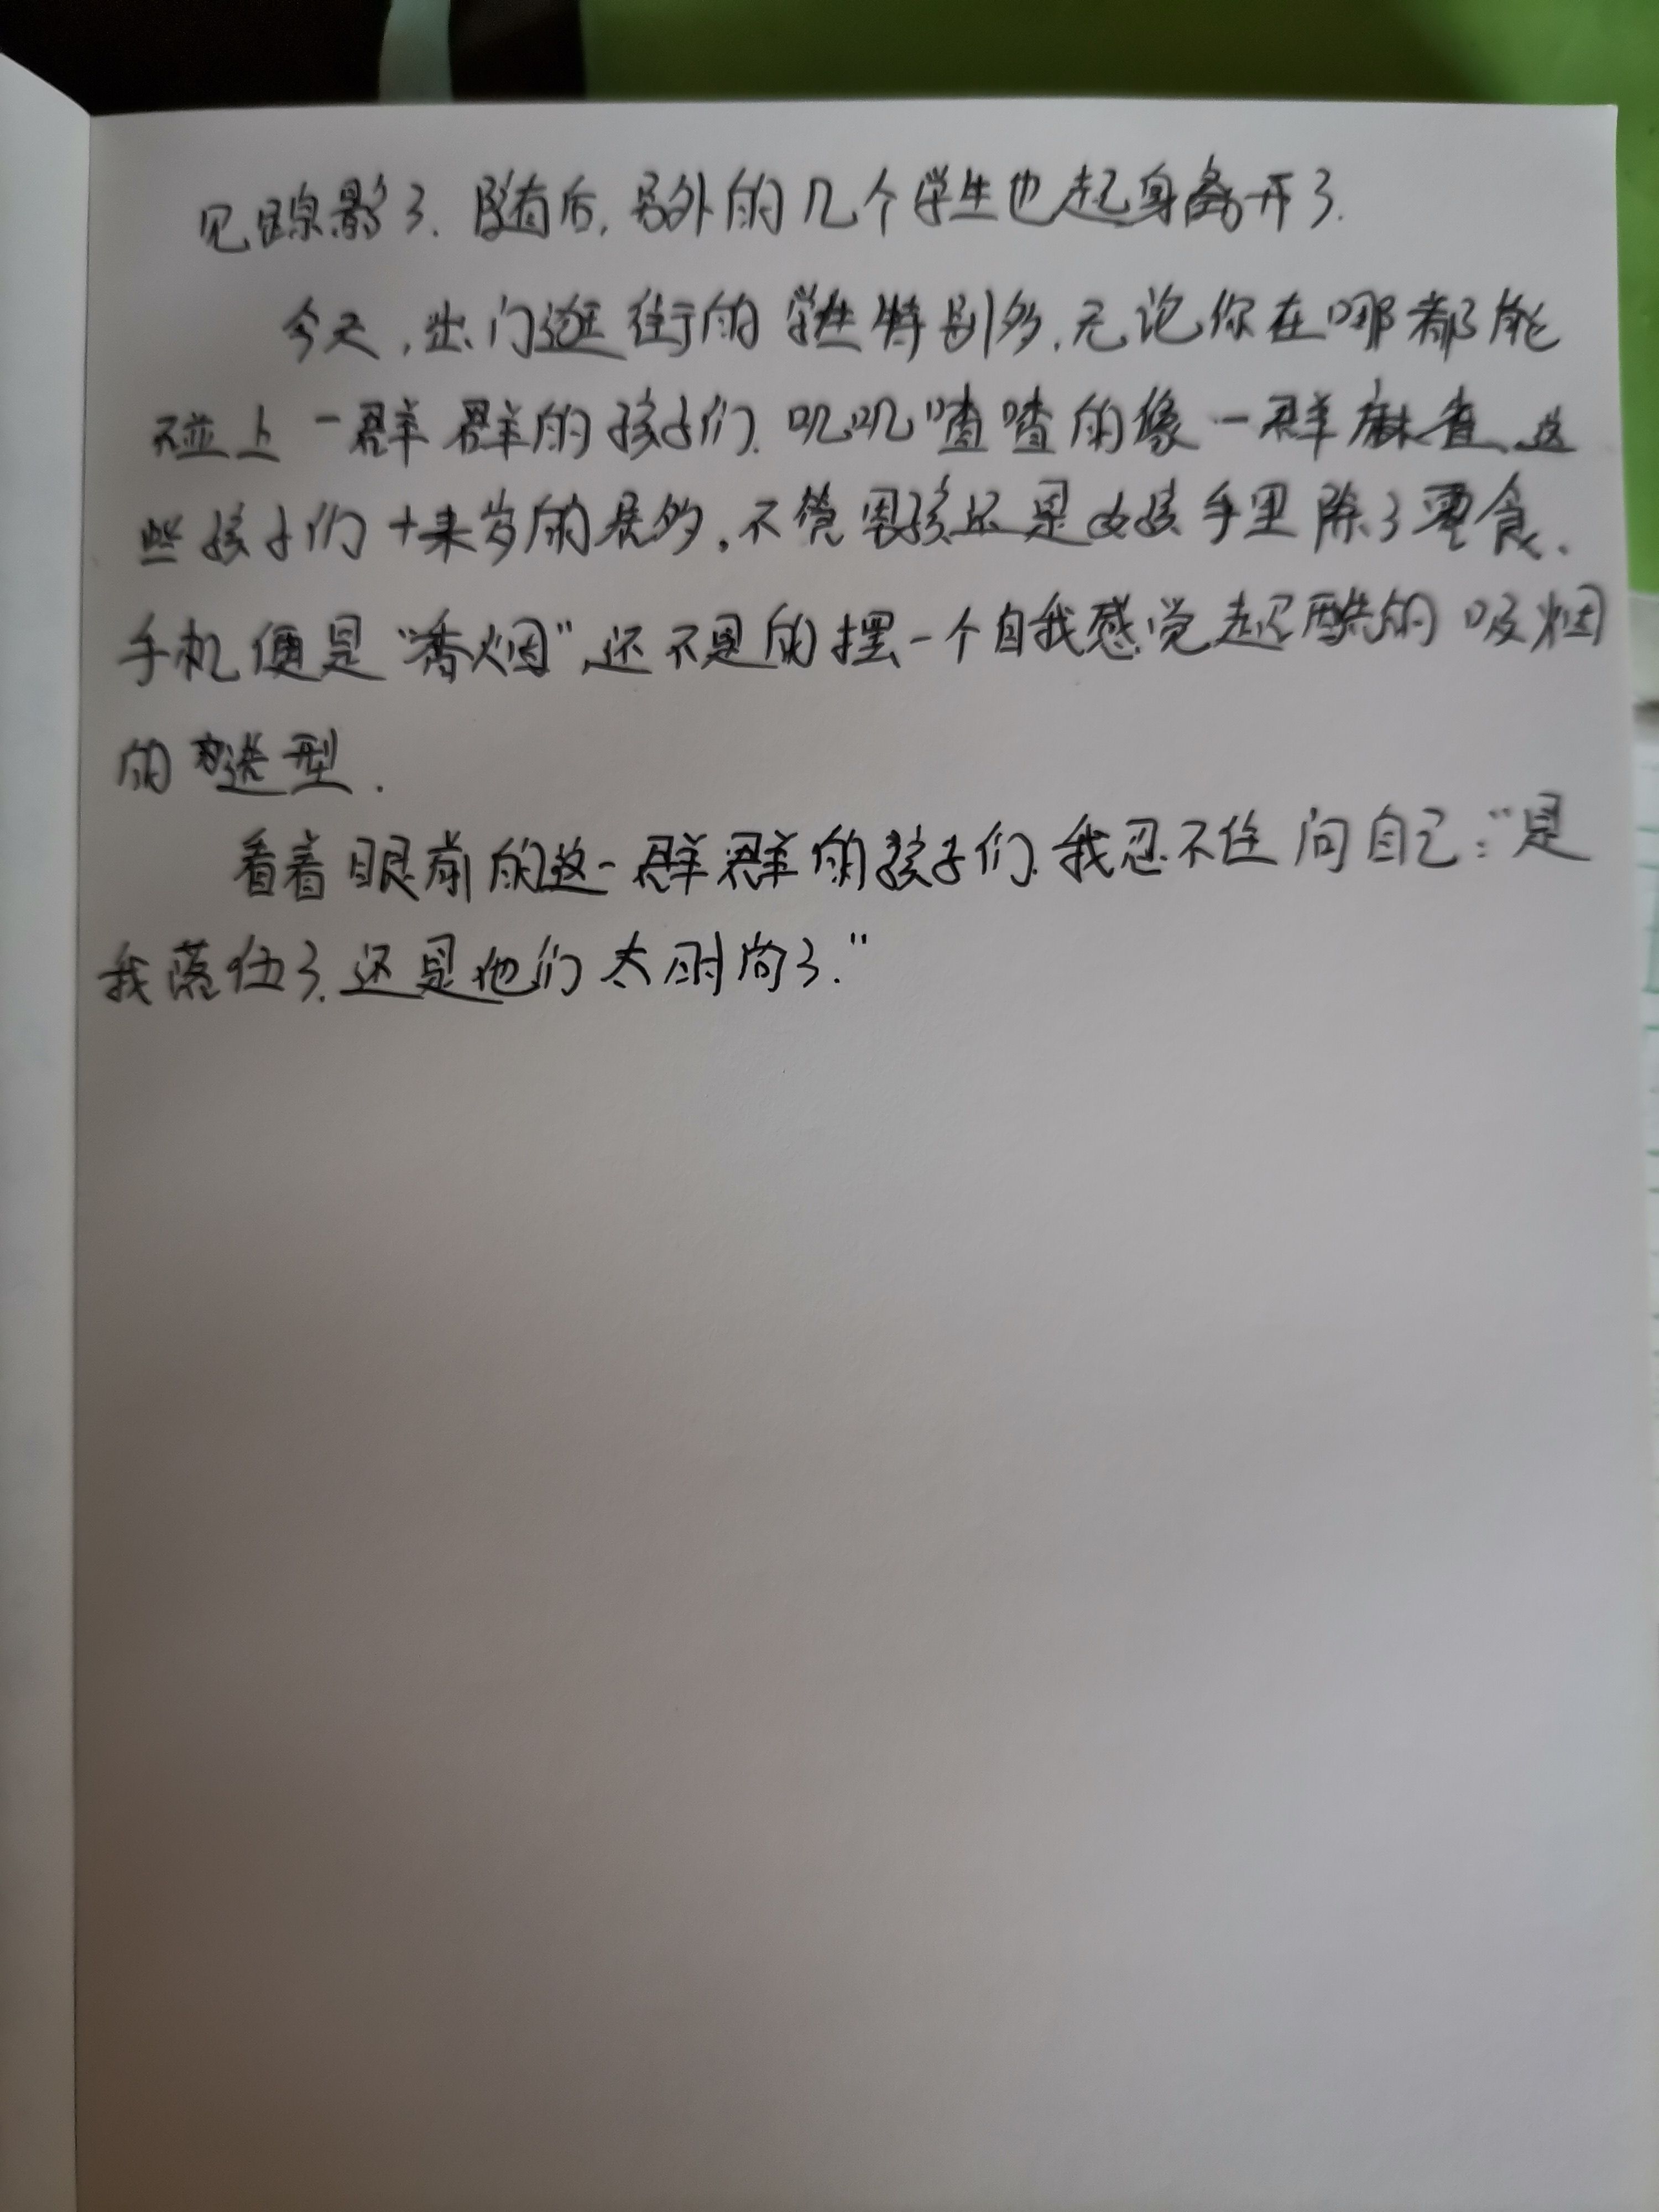 见踪影了.随后,另外的几个学生也起身离开了.
今天,出门逛街的学生特别多,无论你在哪都能
碰上一群群的孩子们.叽叽喳喳的像一群麻雀.这
些孩子们十来岁的居多,不管男孩还是女孩手里除了零食、
手机便是“香烟”,还不是的摆一个自我感觉超酷的吸烟
的造型.
看着眼前的这一群群的孩子们.我忍不住问自己:“是
我落伍了.还是他们太时尚了.”